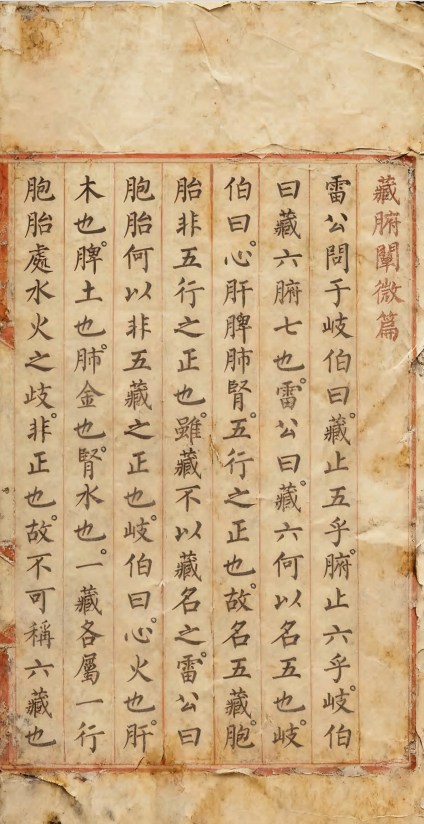 藏腑闡微篇
雷公問于岐伯曰藏止五乎腑止六乎岐伯
曰藏六腑七也雷公曰藏六何以名五也岐
伯曰心肝脾肺腎五行之正也故名五藏胞
胎非五行之正也雖藏不以藏名之雷公曰
胞胎何以非五藏之正也岐伯曰心火也肝
木也脾土也肺金也腎水也一藏各屬一行
胞胎處水火之歧非正也故不可稱六藏也